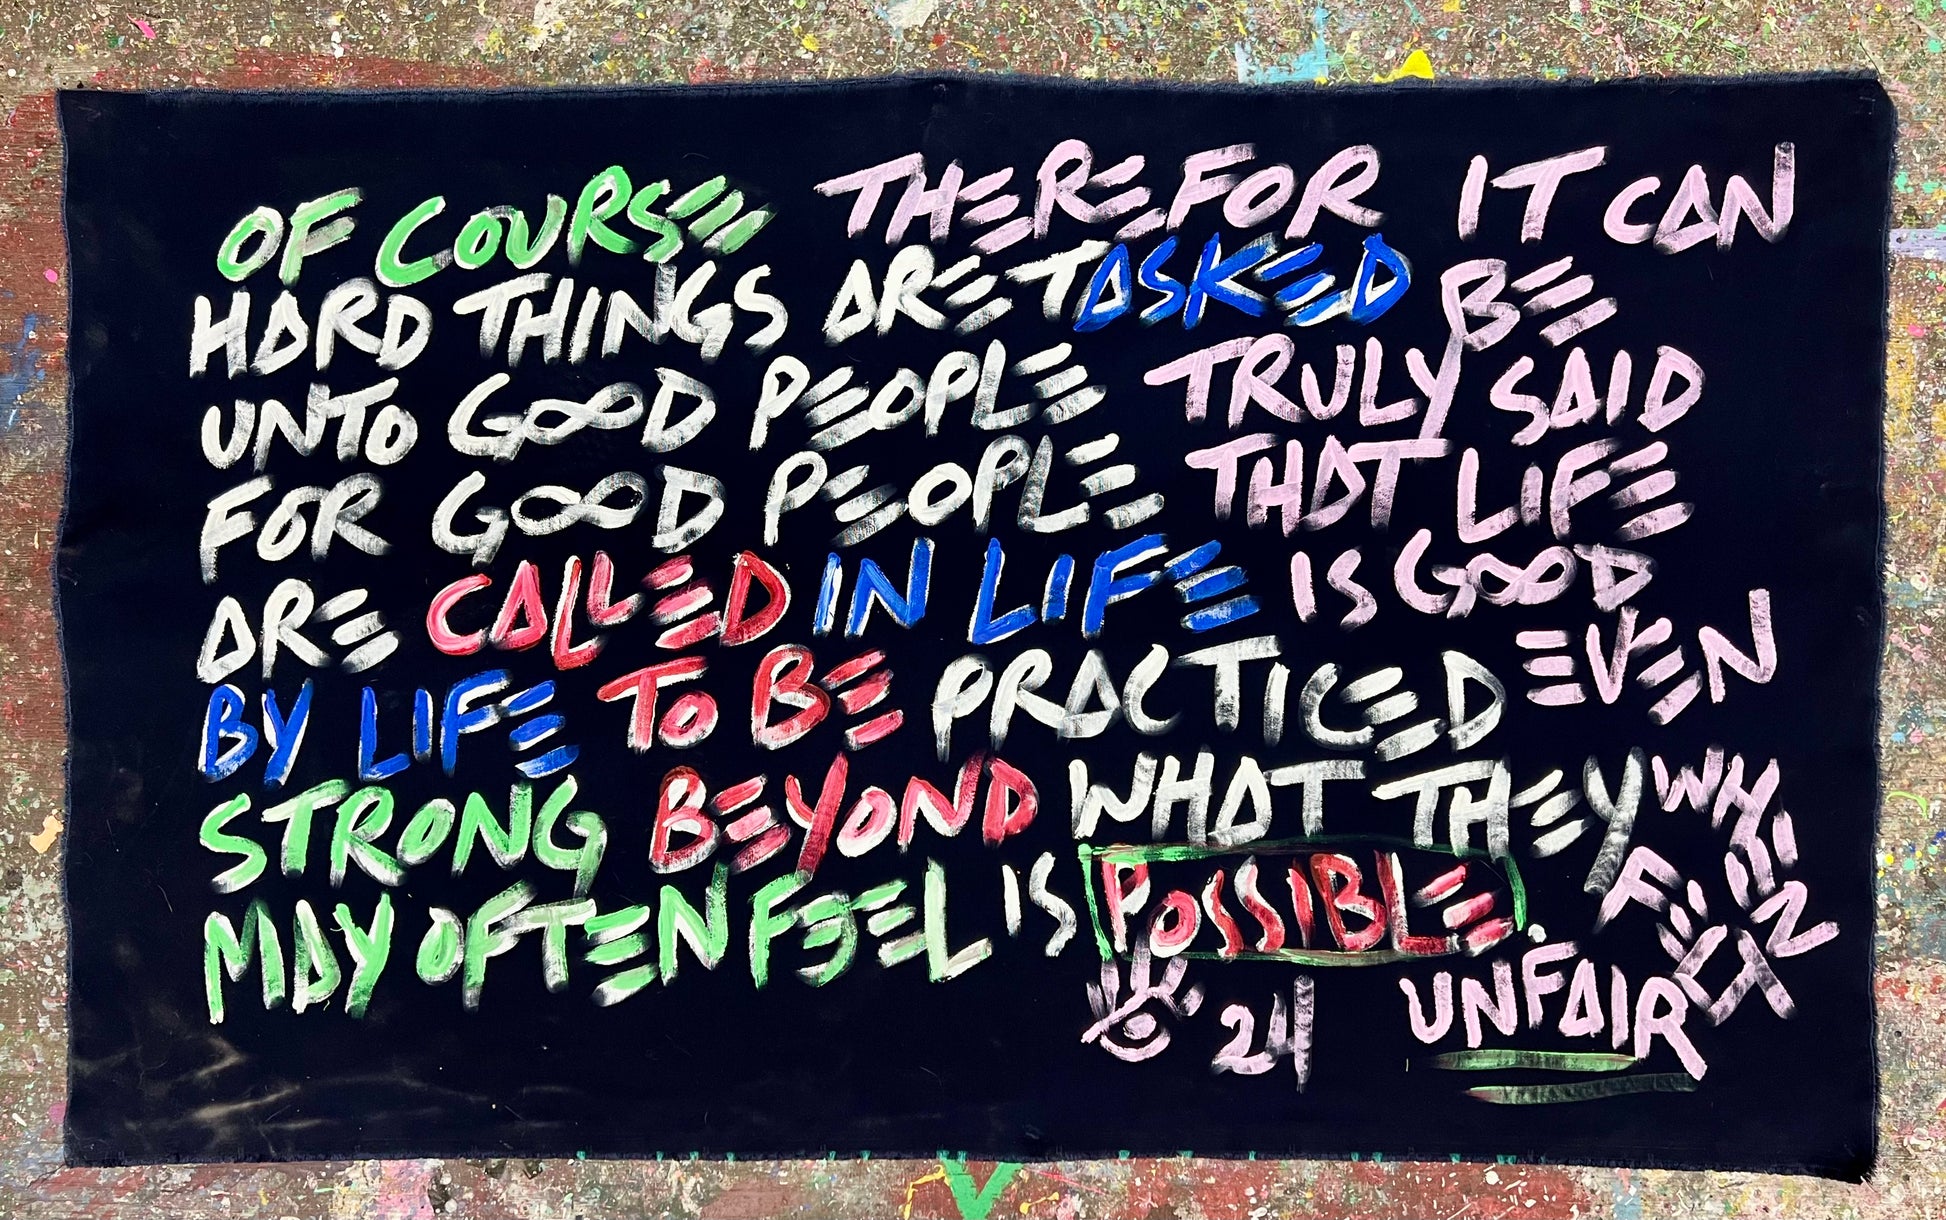 OF COURSE
HARD THINGS ARE TASKED
UNTO GOOD PEOPLE
FOR GOOD PEOPLE
ARE CALLED IN LIFE
BY LIFE TO BE PRACTICED
STRONG BEYOND WHAT THEY
MAY OFTEN FEEL IS POSSIBLE.
THEREFOR IT CAN
BE
TRULY SAID
THAT LIFE
IS GOOD
EVEN
WHEN
FELT
UNFAIR
24